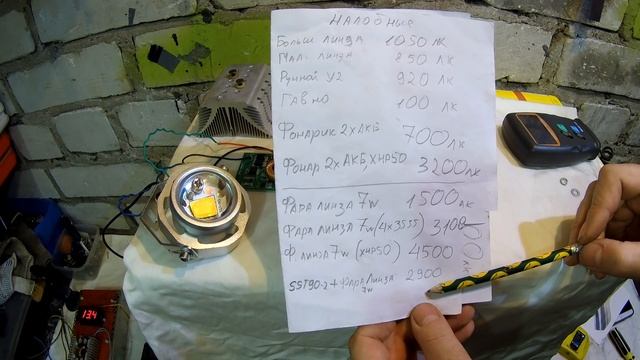 НАЛОБНЫЕ
Больш линза 1050 лк
Мал линза 850 лк
Ручной У2 920 лк
ГАВНО 100 лк
Фонарик 2хАКБ 700 лк
Фонарь 2х АКБ, XHP50 3200 лк
Фара линза 7w 1500 лк
Фара линза 7w (4х3535) 3100
Ф. линза 7w (XHP50) 4500
SST90-2 + Фара линза 7w 2900 лк
13.4